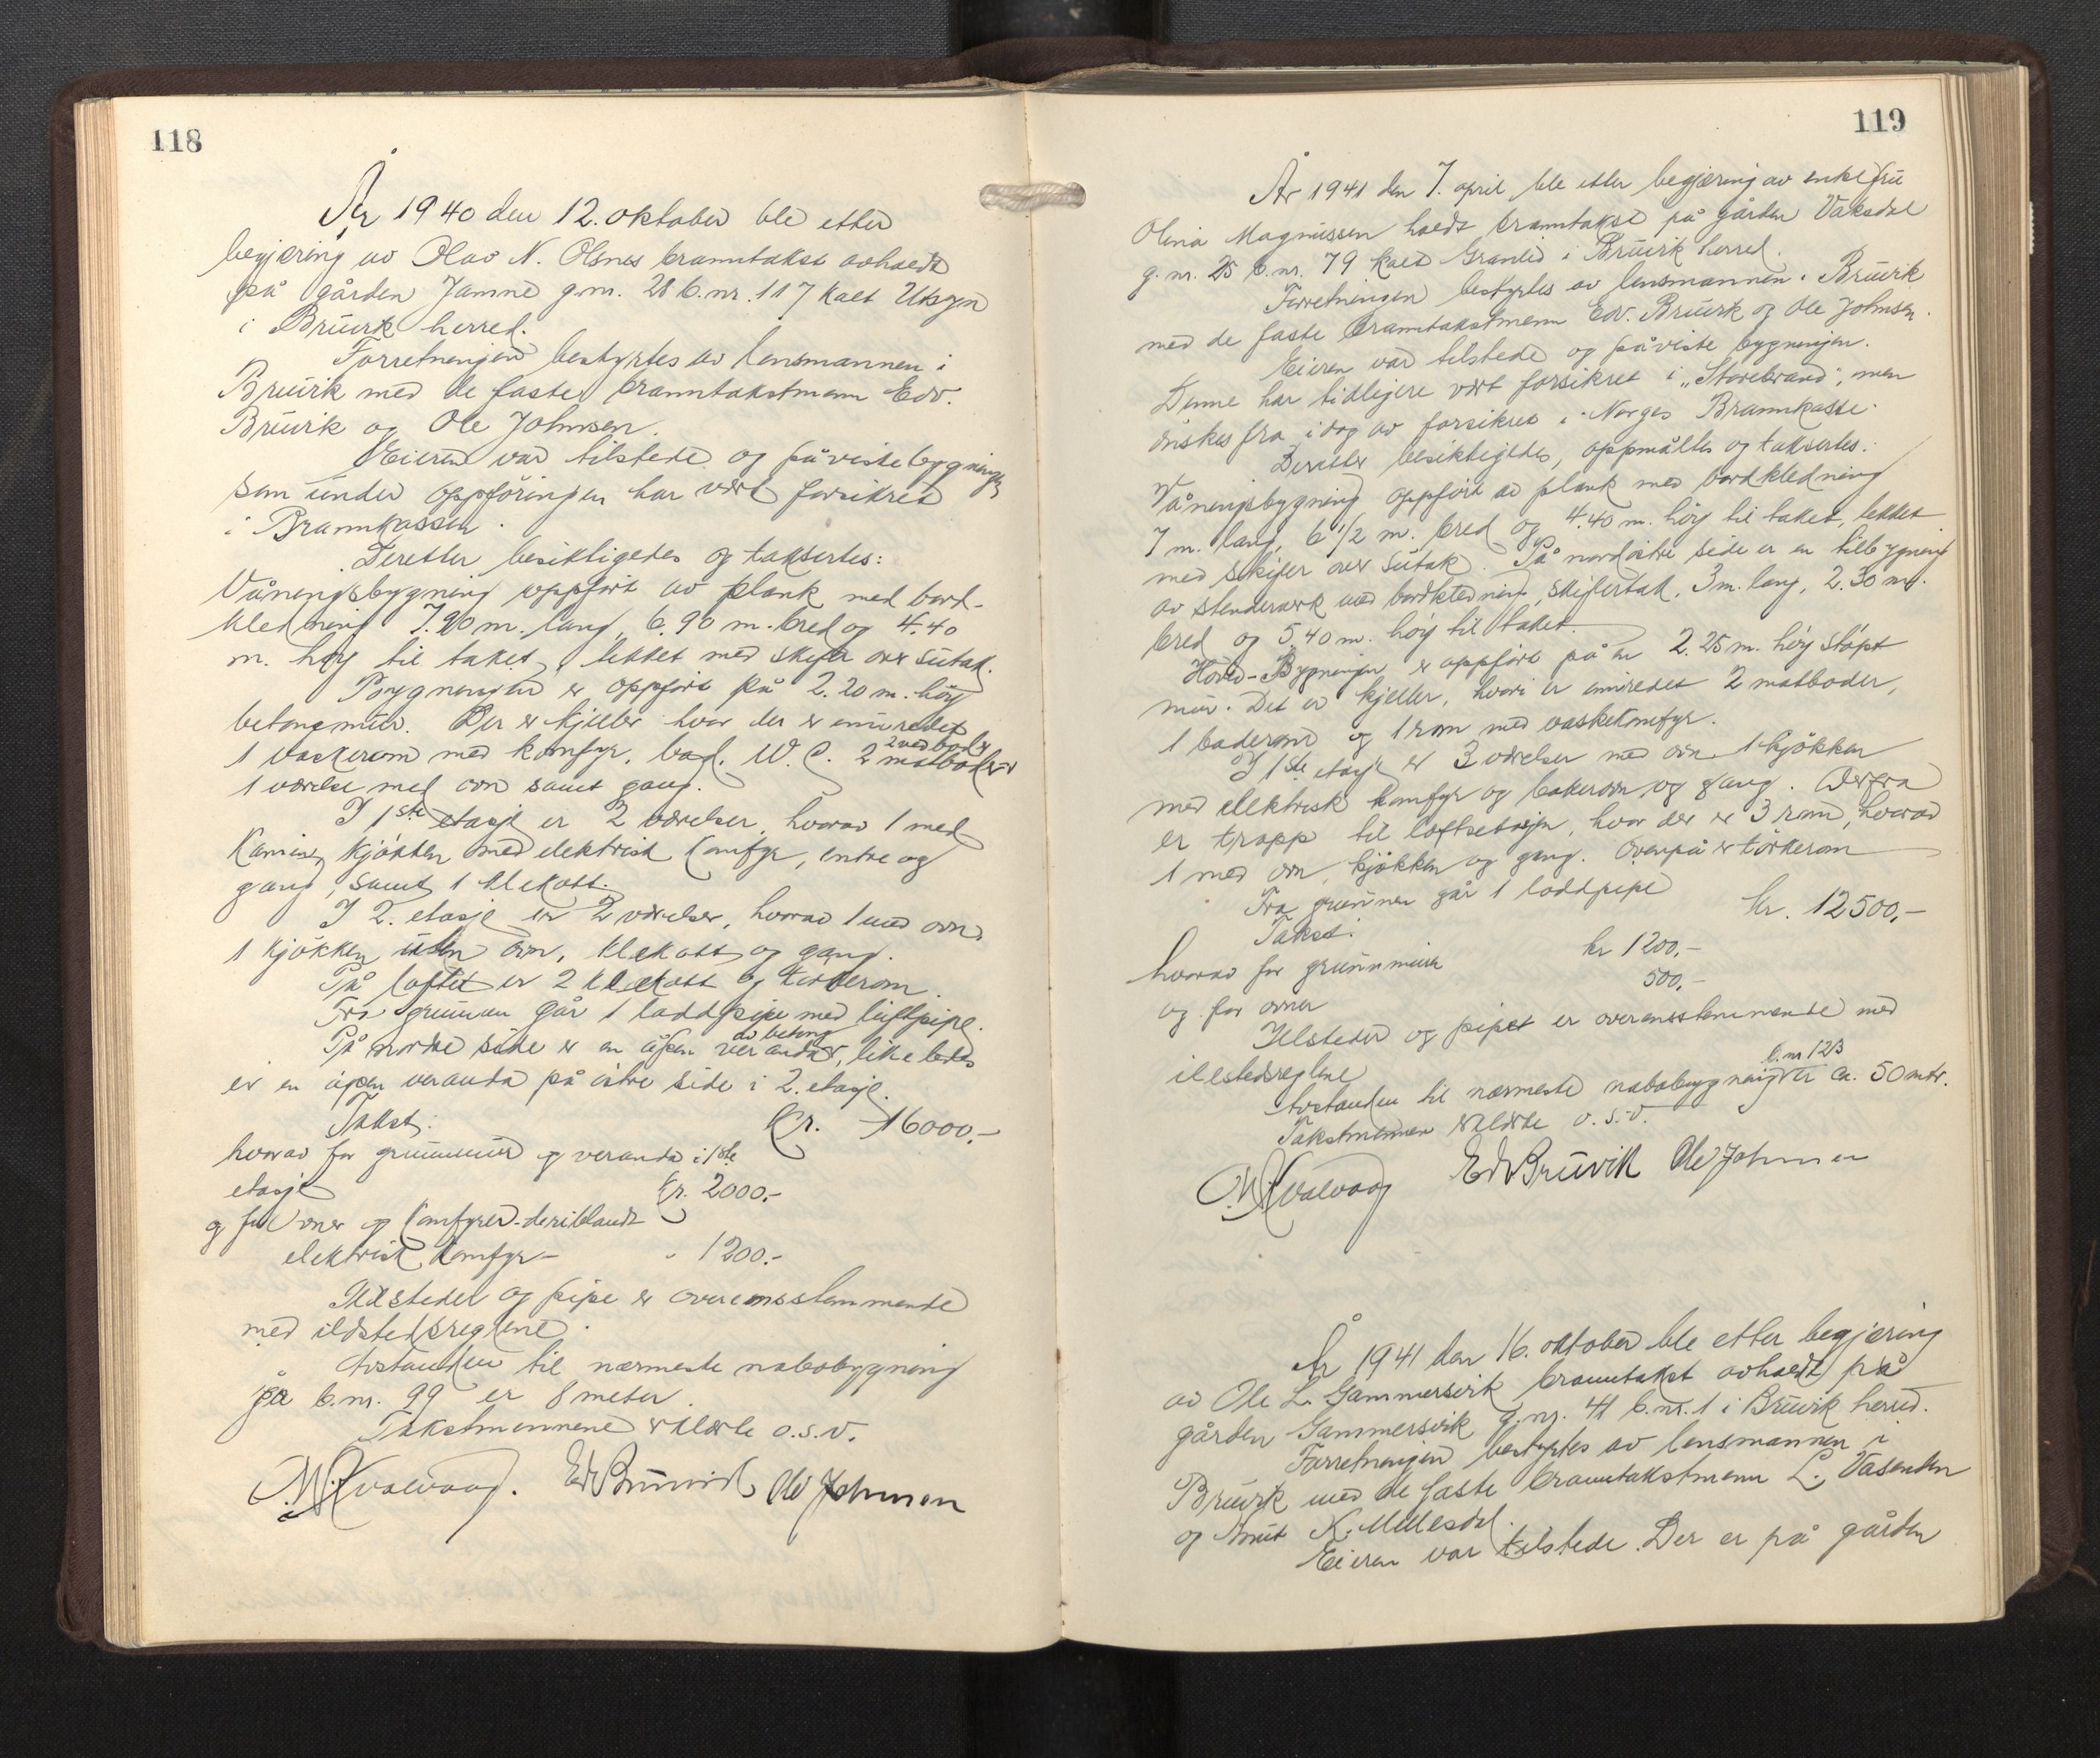 118
År 1940 den 12. oktober ble etter
begjæring av Olav N. Olsnes branntakst avholdt
på gården Jamne g.nr. 28 b.nr. 117 kalt Utsyn
i Bruvik herred.
Forretningen bestyrtes av lensmannen i
Bruvik med de faste branntakstmenn Edv.
Bruvik og Ole Johnsen.
Eieren var tilstede og påviste bygningen
som under oppføringen har vært forsikret
i Brannkassen.
Derefter besiktigedes og taksertes:
Våningsbygning oppført av plank med bord-
kledning 7.90 m. lang, 6.90 m. bred og 4.40
m. høy til taket, tekket med skifer over sutak.
Bygningen er oppført på 2.20 m. høy
betongmur. Der er kjeller hvor der er innredet
1 vaskerom med komfyr, bad, W.C. 2 matboder
2 vedboder
1 værelse med ovn samt gang.
I 1ste etasje er 2 værelser, hvorav 1 med
Kamin, kjøkken med elektrisk komfyr, entre og
gang, samt 1 klekott.
I 2. etasje er 2 værelser, hvorav 1 med ovn
1 kjøkken uten ovn, klekott og gang.
På loftet er 2 klekott og tørkerom.
Fra grunnen går 1 loddpipe med luftpipe.
av betong
På nordre side er en åpen veranda, likeledes
er en åpen veranda på østre side i 2. etasje.
Takst: Kr. 16000.-
hvorav for grunnmur og veranda i 1ste
etasje Kr. 2000.-
og for ovner og komfyrer - deriblandt
elektrisk komfyr - " 1200.-
Ildsteder og pipe er overensstemmende
med ildstedsreglene.
Avstanden til nærmeste nabobygning
på b.nr. 99 er 8 meter.
Takstmennene erklærte o.s.v.
M. Kvalvaag. Edv Bruvik Ole Johnsen
119
År 1941 den 7. april ble etter begjæring av enkefru
Olina Magnussen holdt branntakst på gården Vaksdal
g.nr. 25 b.nr. 79 kalt Granlid i Bruvik herred.
Forretningen bestyrtes av lensmannen i Bruvik
med de faste branntakstmenn Edv. Bruvik og Ole Johnsen.
Eieren var tilstede og påviste bygningen.
Denne har tidligere vært forsikret i „Storebrand", men
ønskes fra i dag av forsikret i Norges Brannkasse.
Derefter besiktigedes, oppmåltes og taksertes:
Våningsbygning oppført av plank med bordkledning
7 m. lang, 6 1/2 m. bred og 4.40 m. høy til taket, tekket
med skifer over sutak. På nordøstre side er en tilbygning
av stenderverk med bordkledning, skifertak, 3 m. lang, 2.30 m.
bred og 5,40 m. høy til taket.
Hoved-Bygningen er oppført på en 2.25 m. høy støpt
mur. Det er kjeller, hvori er innredet 2 matboder,
1 baderom og 1 rom med vaskekomfyr.
I 1ste etasje er 3 værelser med ovn 1 kjøkken
med elektrisk komfyr og bakerovn og gang. Derfra
er trapp til loftsetasjen, hvor der er 3 rom, hvorav
1 med ovn, kjøkken og gang. Ovenpå er tørkerom
Fra grunnen går 1 loddpipe
Takst: kr. 12500,-
hvorav for grunnmur kr 1200,-
og for ovner 500,-
Ildsteder og pipe er overensstemmende med
ildstedsreglene
b.nr 123
Avstanden til nærmeste nabobygning er ca. 50 mtr.
Takstmennene erklærte o.s.v.
M. Kvalvaag Edv Bruvik Ole Johnsen
År 1941 den 16. oktober ble etter begjæring
av Ole L. Gammersvik branntakst avholdt på
gården Gammersvik g.nr. 41 b.nr. 1 i Bruvik herred.
Forretningen bestyrtes av lensmannen i
Bruvik med de faste branntakstmenn L. Vasenden
og Knut K. Mellesdal.
Eieren var tilstede. Der er på gården